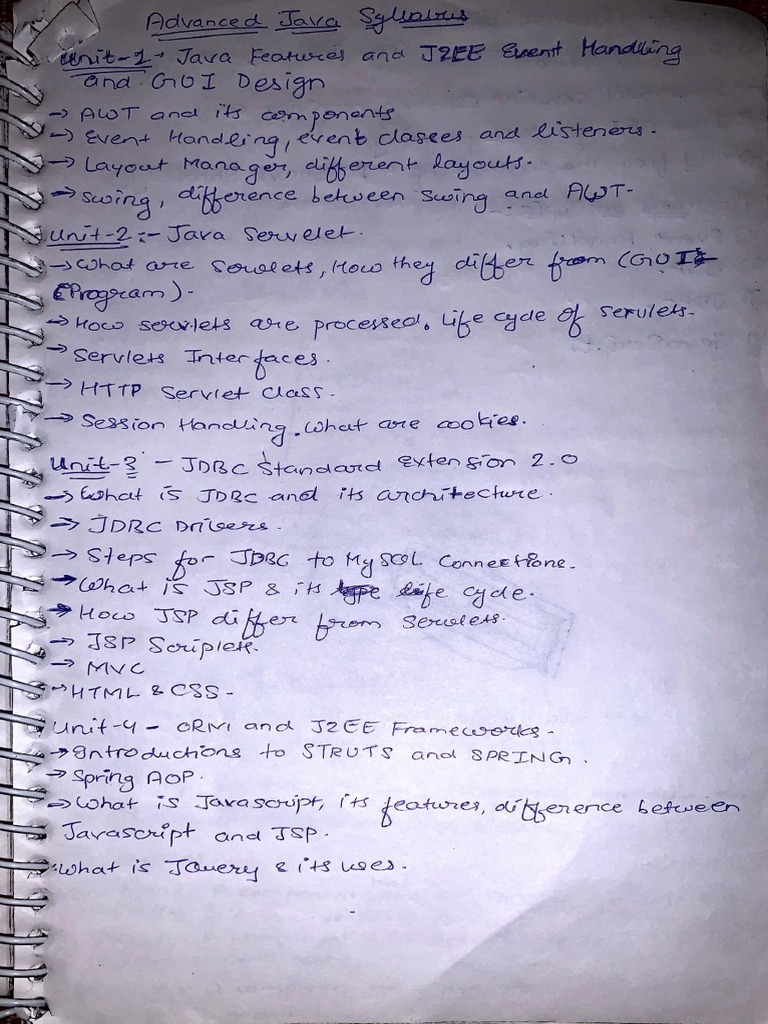 Advanced Java Syllabus
Unit-1 → Java Features and J2EE Event Handling
and GUI Design
→ AWT and its components
→ Event Handling, event classes and listeners.
→ Layout Manager, different layouts.
→ Swing, difference between Swing and AWT-
Unit-2 :- Java Servelet.
→ What are Servlets, How they differ from (GUI
Program).
→ How servlets are processed. Life cycle of servlets-
→ Servlets Interfaces.
→ HTTP Servlet class.
→ Session Handling. What are cookies.
Unit-3 - JDBC Standard extension 2.0
→ What is JDBC and its architecture.
→ JDBC Drivers.
→ Steps for JDBC to MySQL Connections.
→ What is JSP & its life cycle.
→ How JSP differ from Servlets.
→ JSP Scriplets.
→ MVC
→ HTML & CSS -
Unit-4 - ORM and J2EE Frameworks.
→ Introductions to STRUTS and SPRING.
→ Spring AOP.
→ What is Javascript, its features, difference between
Javascript and JSP.
→ What is JQuery & its uses.